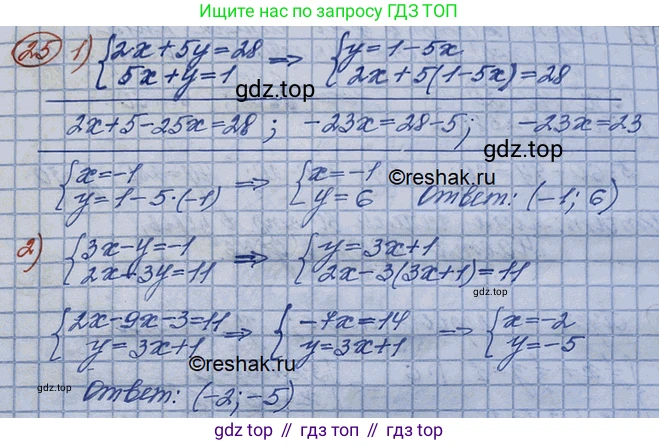 Ищите нас по запросу ГДЗ ТОП
25 1) {2x+5y=28 5x+y=1 => {y=1-5x 2x+5(1-5x)=28
gdz.top
2x+5-25x=28; -23x=28-5; -23x=23
{x=-1 y=1-5·(-1) => {x=-1 y=6 Ответ: (-1; 6)
©reshak.ru
2) {3x-y=-1 2x-3y=11 => {y=3x+1 2x-3(3x+1)=11
{2x-9x-3=11 y=3x+1 => {-7x=14 y=3x+1 => {x=-2 y=-5
©reshak.ru
gdz.top
Ответ: (-2; -5)
gdz.top // гдз.топ // gdz.top